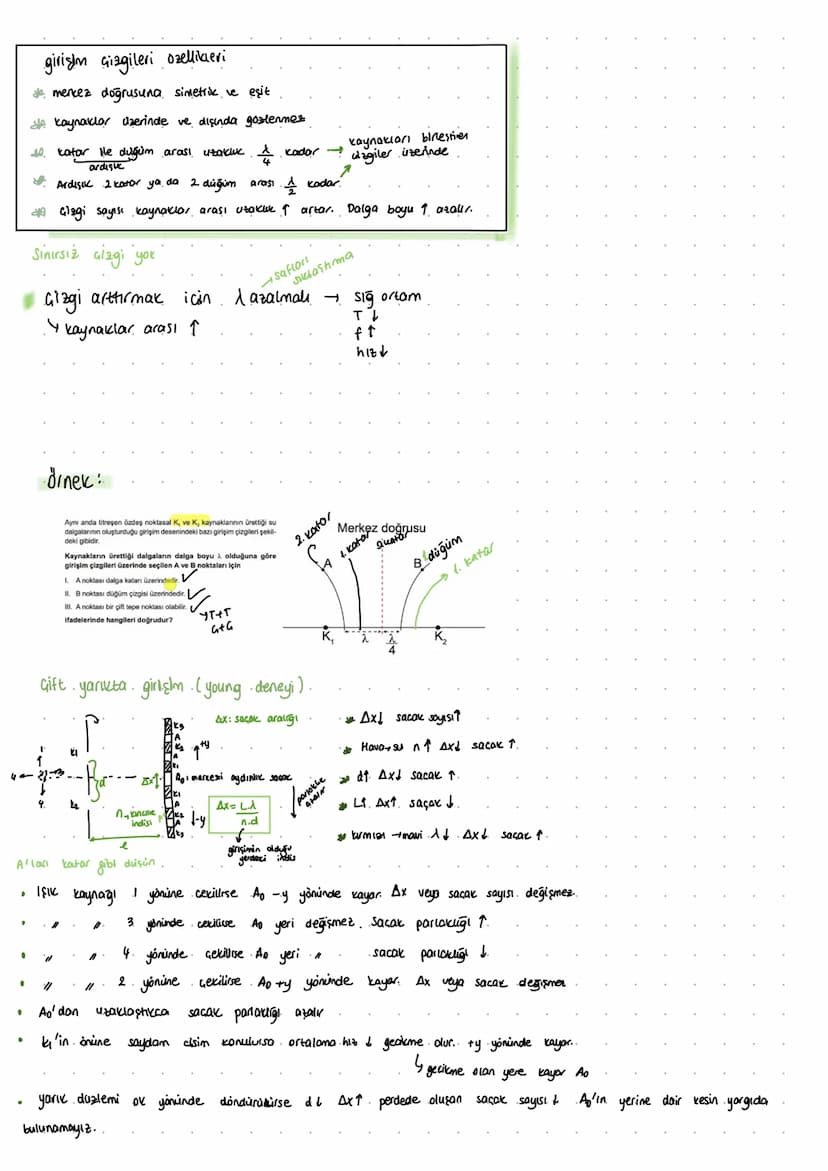 girişim çizgileri özellikleri
merkez doğrusuna simetrik ve eşit
kaynaklar üzerinde ve dışında gözlenmez
katar ile düğüm arası uzaklık λ/4 kadar → kaynakları birleştiren çizgiler üzerinde
ardışık
Ardışık 2 katar ya da 2 düğüm arası λ/2 kadar
çizgi sayısı kaynaklar arası uzaklık ↑ artar. Dalga boyu ↑ azalır.
Sınırsız çizgi yok
→ safları sıklaştırma
çizgi arttırmak için λ azalmalı → sığ ortam
↳ kaynaklar arası ↑
T ↓
f ↑
hız ↓
örnek:
Aynı anda titreşen özdeş noktasal K₁ ve K₂ kaynaklarının ürettiği su
dalgalarının oluşturduğu girişim desenindeki bazı girişim çizgileri şekil-
deki gibidir.
Kaynakların ürettiği dalgaların dalga boyu λ olduğuna göre
girişim çizgileri üzerinde seçilen A ve B noktaları için
I. A noktası dalga katarı üzerindedir.
II. B noktası düğüm çizgisi üzerindedir.
III. A noktası bir çift tepe noktası olabilir.
ifadelerinde hangileri doğrudur?
T+T
Ç+Ç
Merkez doğrusu
2. katar
1. katar
0. katar
1. düğüm
1. katar
A
B
K₁
λ
λ/4
K₂
Çift yarıkta girişim (young deneyi)
Δx: saçak aralığı
k₁
k₂
d
Δx
A₀: merkezi aydınlık saçak
+y
-y
parlaklık azalır
n → ortamın indisi
Δx = Lλ / n.d
girişimin olduğu yerdeki indis
Δx↓ saçak sayısı↑
Hava→su n↑ Δx↓ saçak ↑
d↑ Δx↓ saçak ↑
L↑ Δx↑ saçak ↓
kırmızı → mavi λ↓ Δx↓ saçak ↑
A'ları katar gibi düşün
Işık kaynağı 1 yönüne çekilirse A₀ -y yönünde kayar. Δx veya saçak sayısı değişmez.
" " 3 yönünde çekilirse A₀ yeri değişmez. Saçak parlaklığı ↑
" " 4 yönünde çekilirse A₀ yeri " saçak parlaklığı ↓
" " 2 yönüne çekilirse A₀ +y yönünde kayar. Δx veya saçak değişmez
A₀'dan uzaklaştıkça saçak parlaklığı azalır
k₁'in önüne saydam cisim konulursa ortalama hız ↓ gecikme olur. +y yönünde kayar.
↳ gecikme olan yere kayar A₀
yarık düzlemi ok yönünde döndürülürse d↓ Δx↑ perdede oluşan saçak sayısı ↓ A₀'ın yerine dair kesin yargıda
bulunamayız.